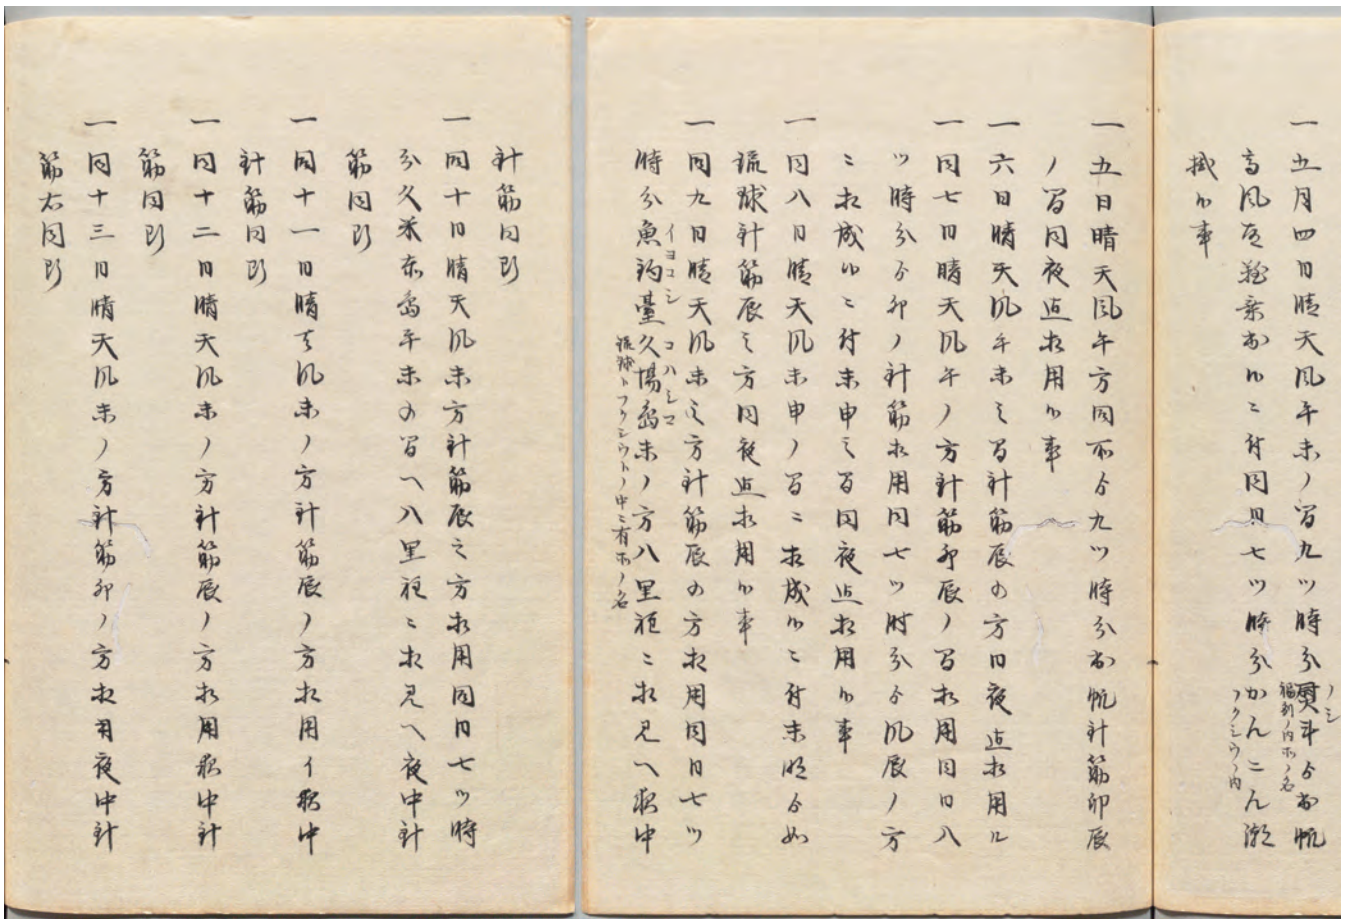 一 五月四日晴天風午未ノ間九ツ時分熨斗ゟ出帆
ノシ
福州ノ内所ノ名
高風 出候ニ付同日七ツ時分かんこん瀬
フクシウノ内
掛候事
一 五日晴天風午方同所ゟ九ツ時分出帆針筋卯辰
ノ間同夜迄相用候事
一 六日晴天風午未之間針筋辰の方日夜迄相用ル
一 同七日晴天風午ノ方針筋卯辰ノ間相用同日八
ツ時分ゟ卯ノ針筋相用同七ツ時分ゟ風辰ノ方
ニ相成候ニ付未申之間同夜迄相用候事
一 同八日晴天風未申ノ間ニ相成候ニ付未明ゟ如
琉球針筋辰之方同夜迄相用候事
一 同九日晴天風未之方針筋辰の方相用同日七ツ
イヨコシ コハシマ
時分魚釣臺久場島未ノ方八里程ニ相見へ夜中
琉球トフクシウトノ中ニ有所ノ名
針筋同断
一 同十日晴天風未方針筋辰之方相用同日七ツ時
分久米赤島午未の間へ八里程ニ相見へ夜中針
筋同断
一 同十一日晴天風未ノ方針筋辰ノ方相用イ夜中
針筋同断
一 同十二日晴天風未ノ方針筋辰ノ方相用夜中針
筋同断
一 同十三日晴天風未ノ方針筋卯ノ方相用夜中針
筋右同断